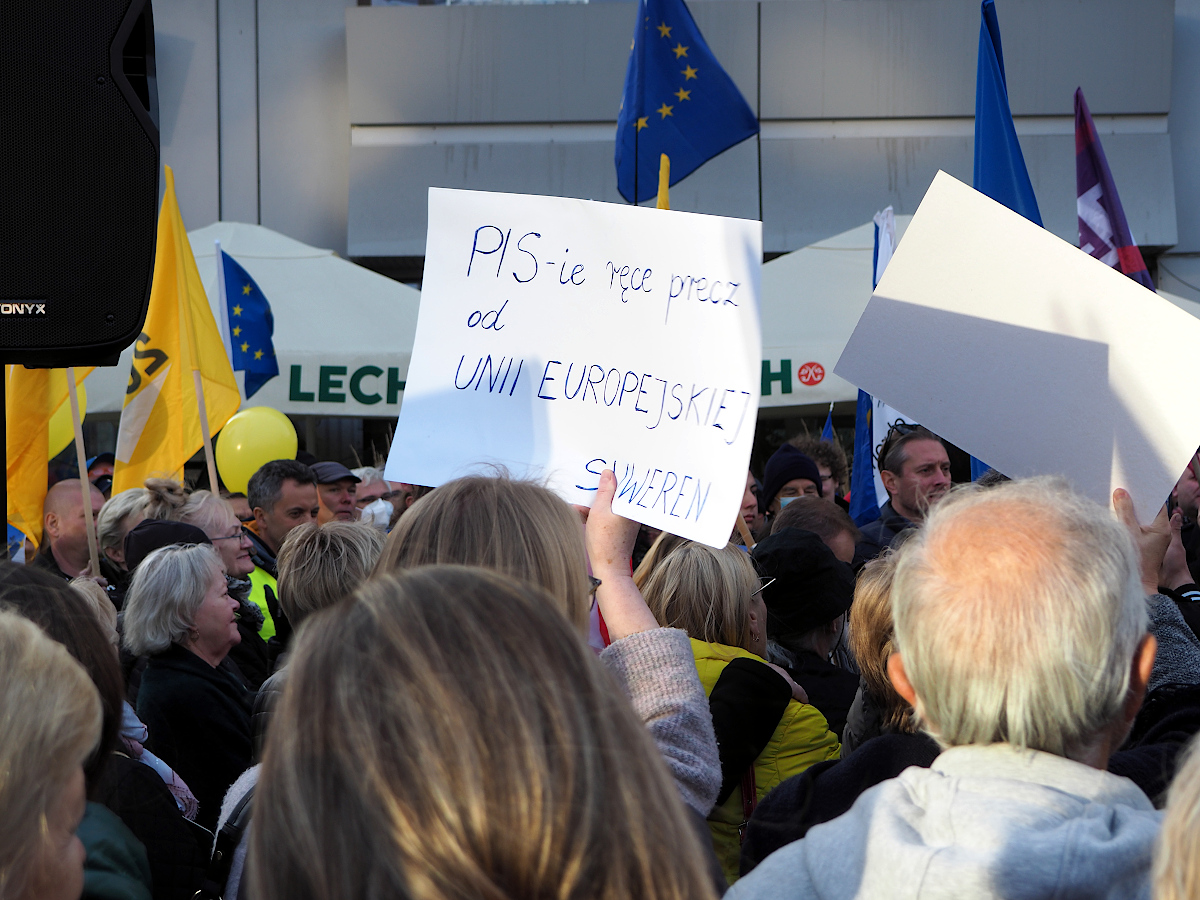 TONYX
PIS-ie ręce precz
od
UNII EUROPEJSKIEJ
SUWEREN
LECH
H